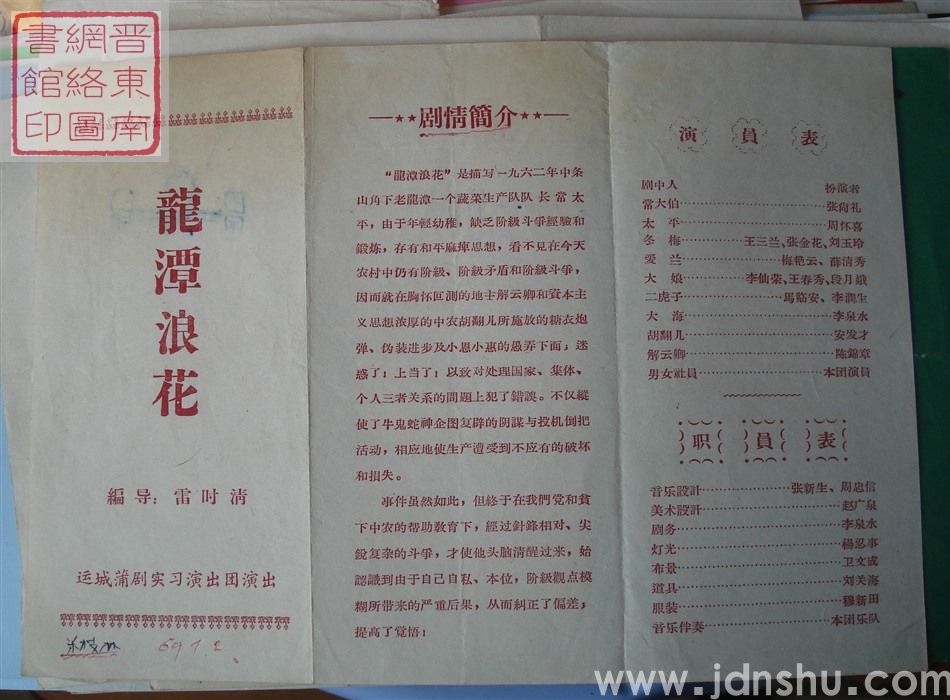 晋東南
網絡圖
書館印
龍潭浪花
編导：雷时清
运城蒲剧实习演出团演出
剧情簡介
“龍潭浪花”是描写一九六二年中条
山角下老龍潭一个蔬菜生产队队长常太
平，由于年輕幼稚，缺乏阶級斗爭經驗和
鍛炼，存有和平麻痺思想，看不見在今天
农村中仍有阶級、阶級矛盾和阶級斗爭，
因而就在胸怀叵測的地主解云卿和資本主
义思想浓厚的中农胡翻儿所施放的糖衣炮
弹、伪装进步及小恩小惠的愚弄下面；迷
惑了！上当了！以致对处理国家、集体、
个人三者关系的問題上犯了錯誤。不仅縱
使了牛鬼蛇神企图复辟的阴謀与投机倒把
活动，相应地使生产遭受到不应有的破坏
和损失。
事件虽然如此，但終于在我們党和貧
下中农的帮助敎育下，經过針鋒相对、尖
銳复杂的斗爭，才使他头脑清醒过来，始
認識到由于自己自私、本位，阶級觀点模
糊所带来的严重后果，从而糾正了偏差，
提高了覚悟！
演員表
剧中人 扮演者
常大伯 张尙礼
太平 周怀喜
冬梅 王三兰、张金花、刘玉玲
爱兰 梅艳云、薛清秀
大娘 李仙荣、王春秀、段月娥
二虎子 馬临安、李潤生
大海 李泉水
胡翻儿 安发才
解云卿 陈錦章
男女社員 本团演員
职員表
音乐設計 张新生、周忠信
美术設計 赵广泉
剧务 李泉水
灯光 楊忍事
布景 卫文成
道具 刘关海
服装 穆新田
音乐伴奏 本团乐队
www.jdnshu.com